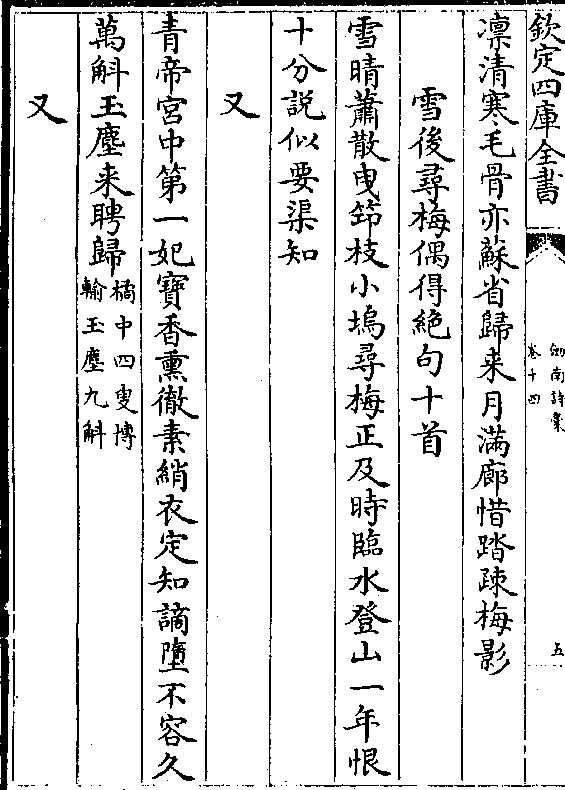 欽定四庫全書
劒南詩槀
卷十四
五
凛清寒毛骨亦蘇省歸来月滿廊惜踏疎梅影
雪後尋梅偶得絶句十首
雪晴蕭散曳笻枝小塢尋梅正及時臨水登山一年恨
十分説似要渠知
又
青帝宮中第一妃寶香熏徹素綃衣定知謫墮不容久
萬斛玉塵来聘歸橘中四叟博
輸玉塵九斛
又